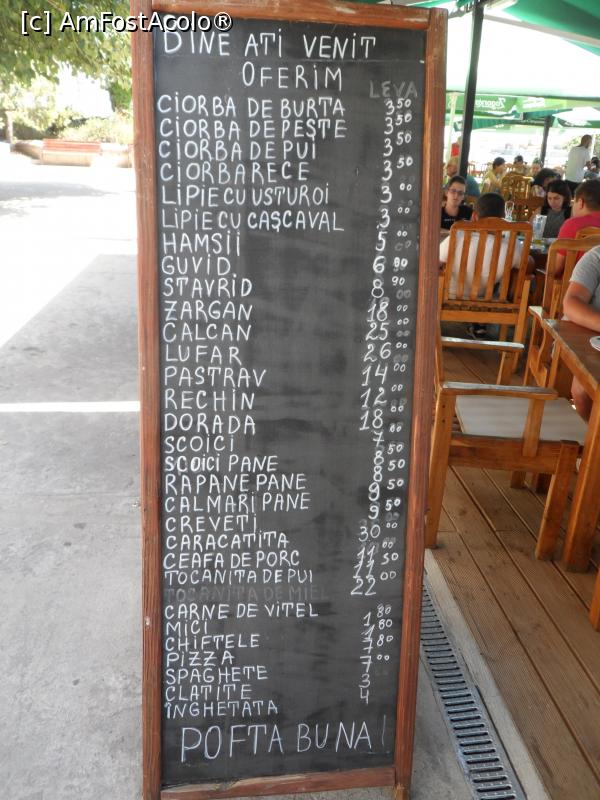 [c] AmFostAcolo®
BINE ATI VENIT
OFERIM
LEVA
CIORBA DE BURTA 3 50
CIORBA DE PESTE 3 50
CIORBA DE PUI 3
CIORBA RECE 3 50
LIPIE CU USTUROI 3 00
LIPIE CU CAȘCAVAL 3 00
HAMSII 5 00
GUVID 6 90
STAVRID 8 90
ZARGAN 18 00
CALCAN 25 00
LUFAR 26 00
PASTRAV 14 00
RECHIN 12 00
DORADA 18 00
SCOICI 7
SCOICI PANE 8 50
RAPANE PANE 8 50
CALMARI PANE 9
CREVETI 9 50
CARACATITA 30 00
CEAFA DE PORC 11 00
TOCANITA DE PUI 11 50
TOCANITA DE MIEL
CARNE DE VITEL 22 00
MICI 1 80
CHIFTELE 1 60
PIZZA 7 80
SPAGHETE 7 00
CLATITE 3
ÎNGHETATA 4
POFTA BUNA!